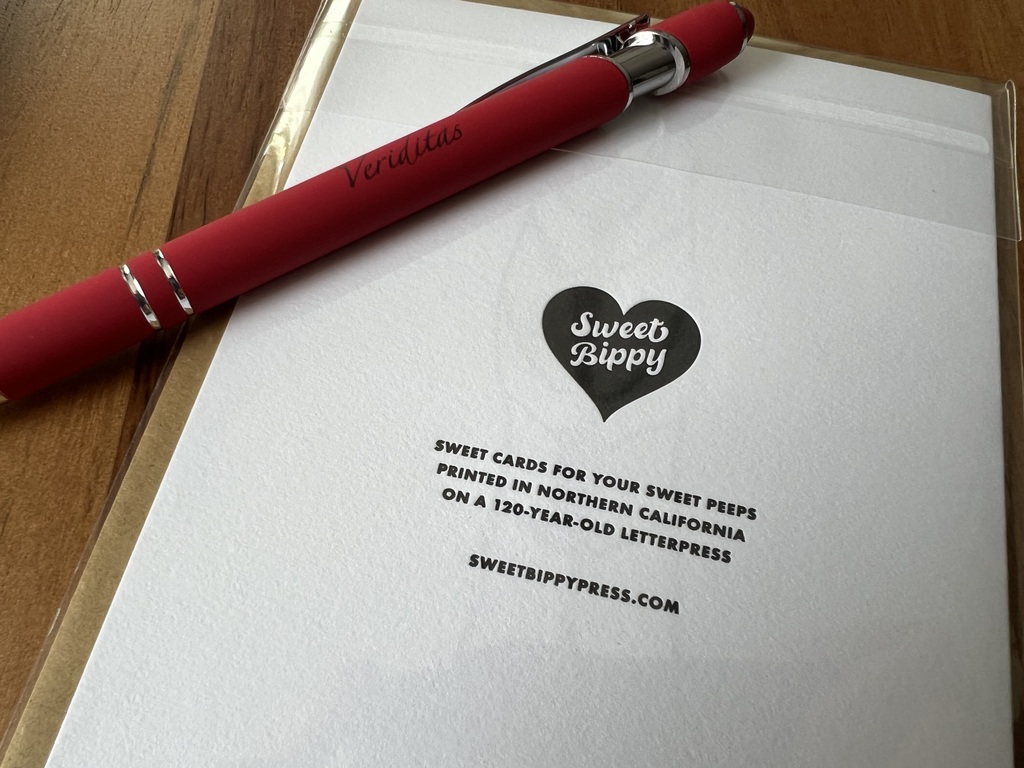 Veriditas
Sweet
Bippy
SWEET CARDS FOR YOUR SWEET PEEPS
PRINTED IN NORTHERN CALIFORNIA
ON A 120-YEAR-OLD LETTERPRESS
SWEETBIPPYPRESS.COM